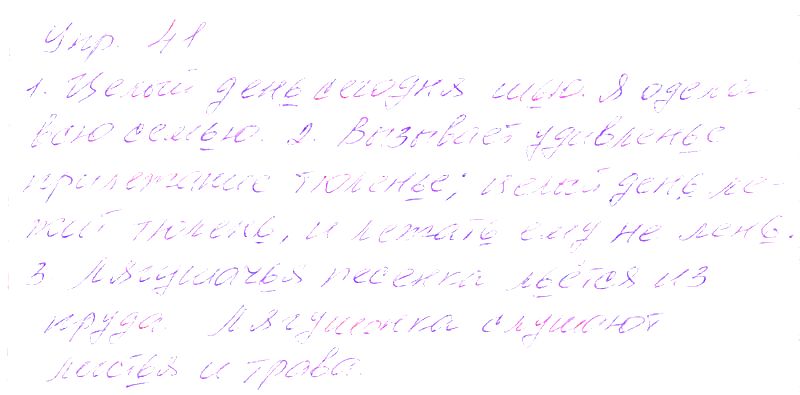 Упр. 41
1. Целый день сегодня шью. Я одела
всю семью. 2. Вызывает удивленье
прилежание тюленье; целый день ле-
жит тюлень, и лежать ему не лень.
3 Лягушачья песенка льётся из
пруда. Лягушонка слушают
листья и трава.